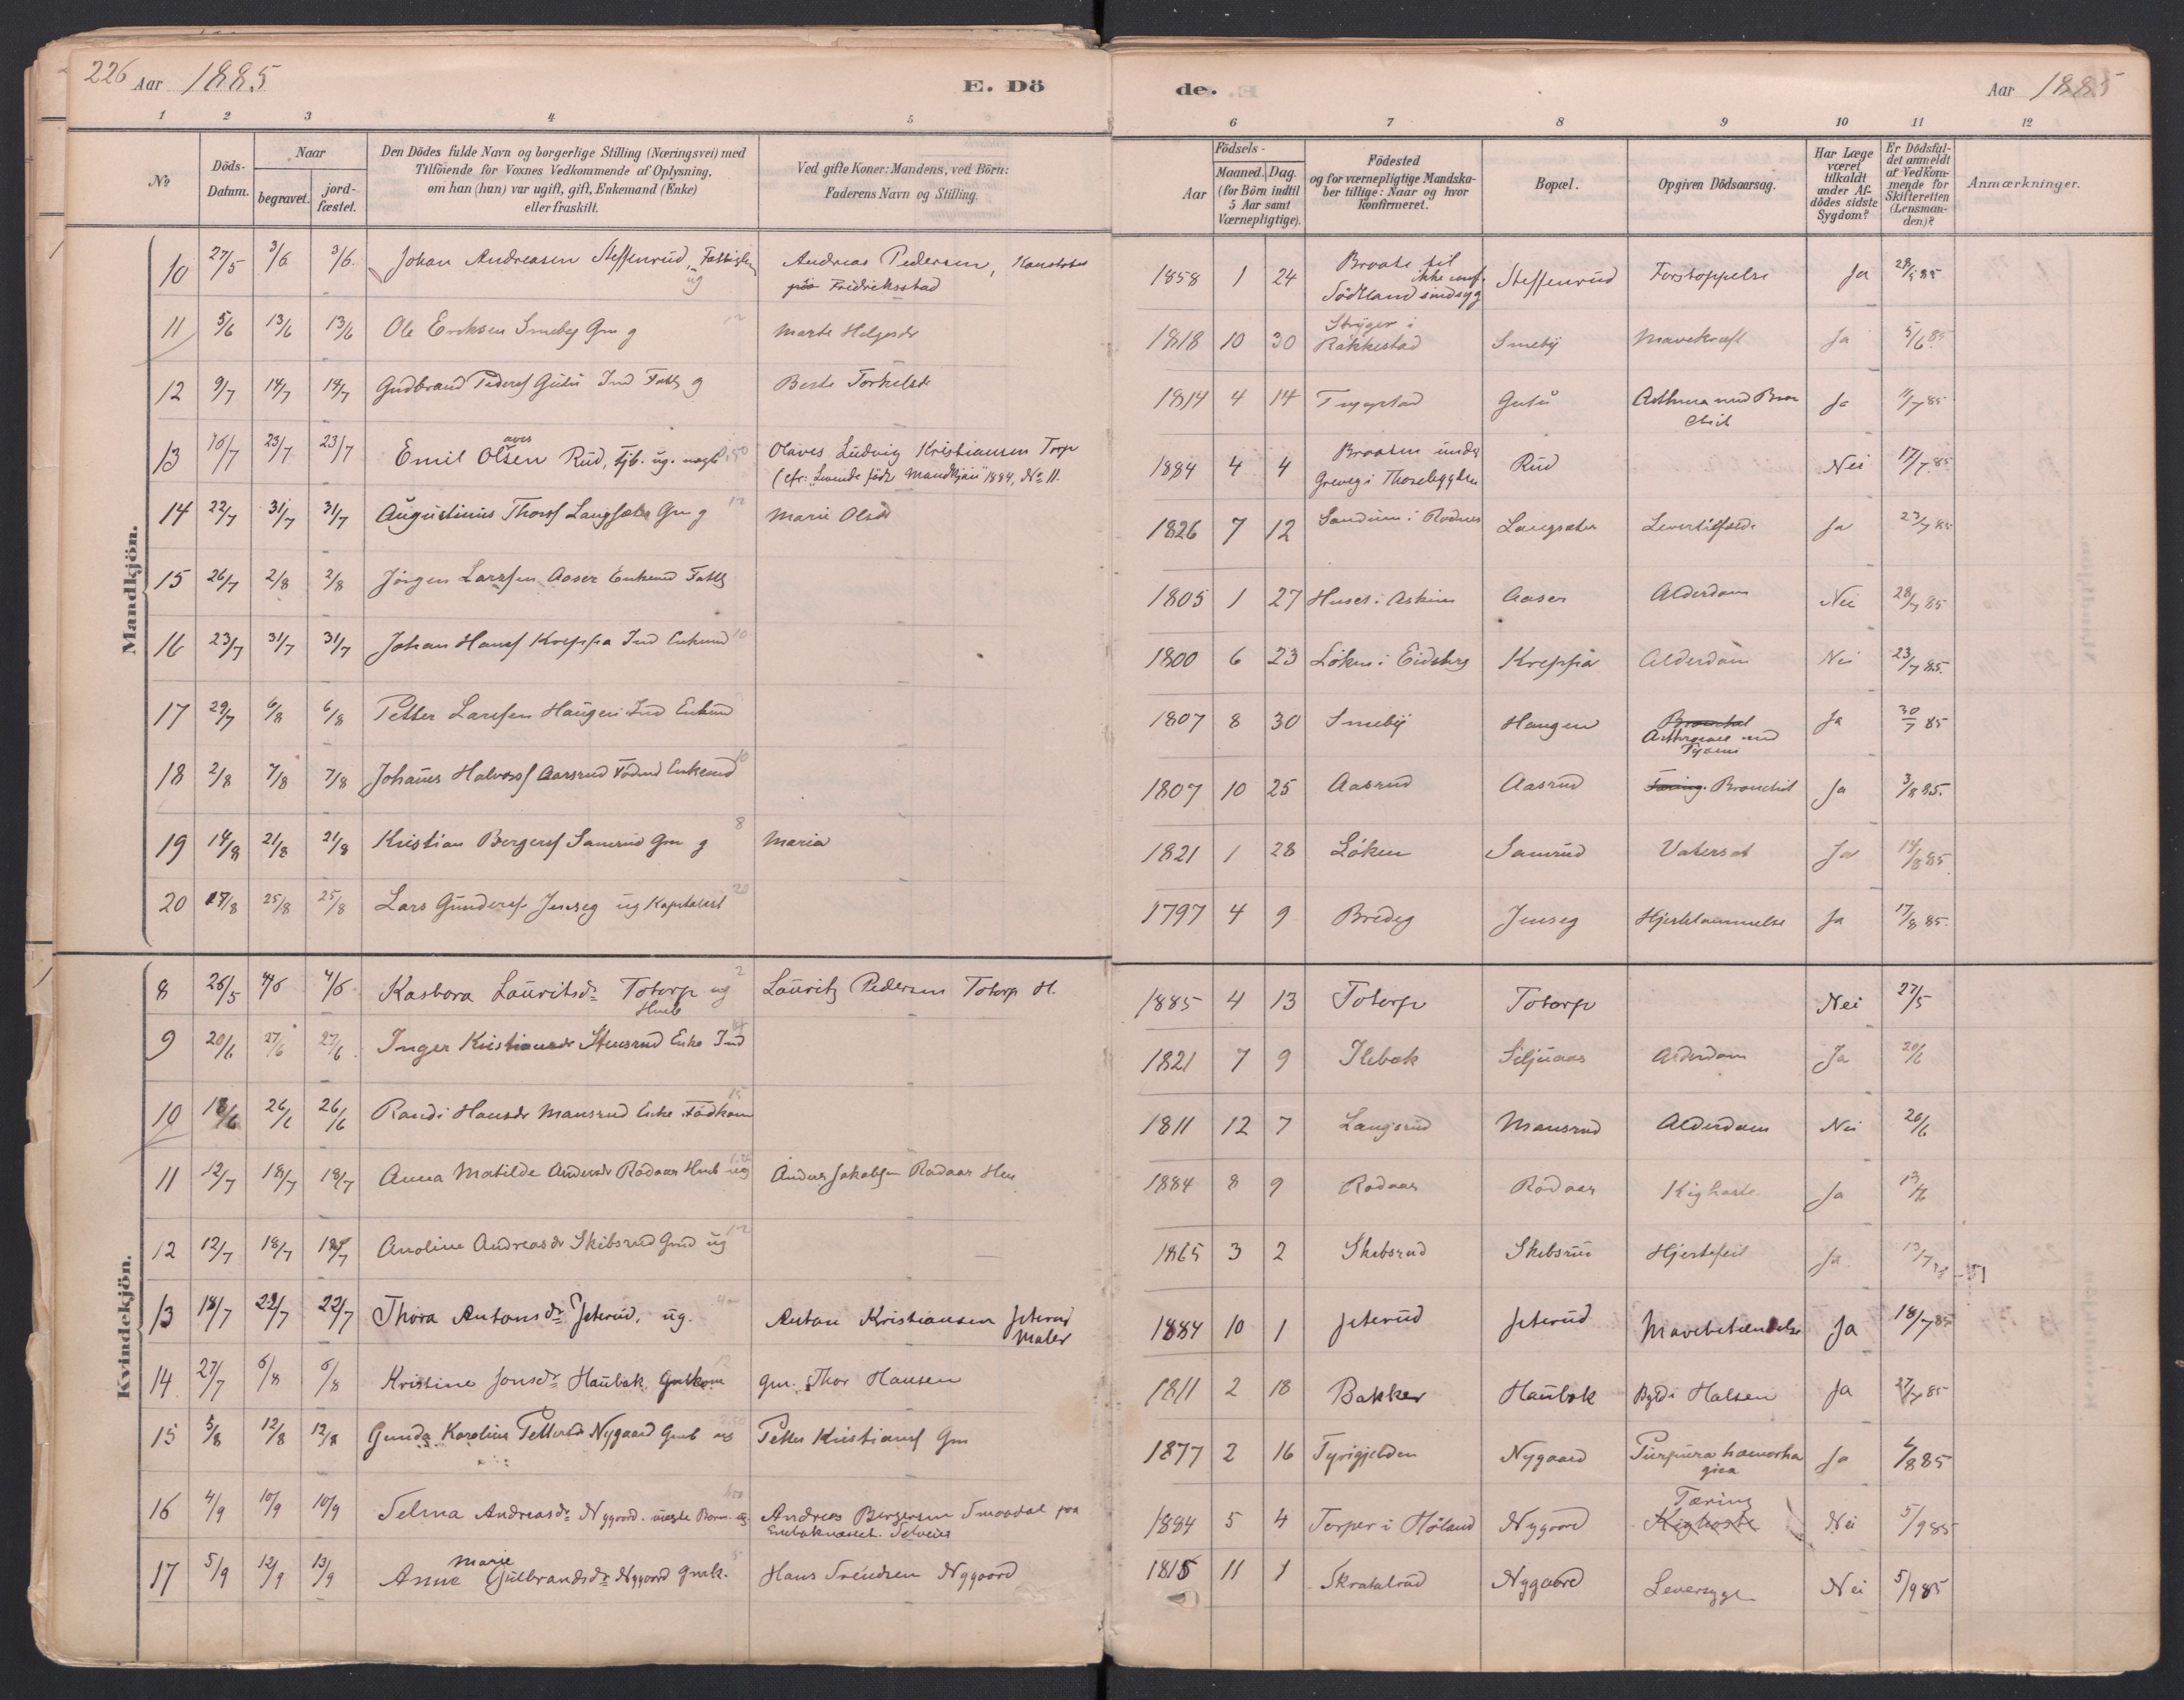 226 Aar 1885 E. Dö
de. Aar 1885
1 2 3 4 5
6 7 8 9 10 11 12
№ Döds-Datum. Naar begravet. jord-fæstet.
Den Dödes fulde Navn og borgerlige Stilling (Næringsvei) med
Tilföiende for Voxnes Vedkommende af Oplysning,
om han (hun) var ugift, gift, Enkemand (Enke)
eller fraskilt.
Ved gifte Koner: Mandens, ved Börn:
Faderens Navn og Stilling.
Födsels-
Aar Maaned. Dag.
(for Börn indtil
5 Aar samt
Værnepligtige).
Födested
og for værnepligtige Mandska-
ber tillige: Naar og hvor
konfirmeret.
Bopæl.
Opgiven Dödsaarsag.
Har Læge
været
tilkaldt
under Af-
dödes sidste
Sygdom?
Er Dödsfal-
det anmeldt
af Vedkom-
mende for
Skifteretten
(Lensman-
den)?
Anmærkninger.
Mandkjön.
10 27/5 3/6 3/6 Johan Andreasen Steffenrud, ug Andreas Pedersen, Fredriksstad 1858 1 24 Braate Steffenrud Forstoppelse Ja
11 5/6 13/6 13/6 Ole Eriksen Smeby Gm g Marte Helgesdr 1818 10 30 Rakkestad Smeby Mavekræft Ja 5/6 85
12 9/7 14/7 14/7 Gudbrand Peders. Gutu Ind g Berte Torkelsdr 1814 4 14 Trygstad Gutu Asthma med Bronchit Ja 11/7 85
13 16/7 23/7 23/7 Emil Olavsen Rud, ug. Olaves Ludvig Kristiansen Torp
(cfr: "Levende födte Mandkjön" 1884, № 11.
1884 4 4 Braaten under Rud Nei 17/7 85
14 22/7 31/7 31/7 Augustinus Thorss. Langsæter Gm g 12 Marie Olsdr 1826 7 12 Langsæter Ja 23/7 85
15 26/7 2/8 2/8 Jörgen Larssen Aaser Enkemd 1805 1 27 Huser i Askim Aaser Alderdom Nei 28/7 85
16 23/7 31/7 31/7 Johan Hanss. Kreppa Ind Enkemd 10 1800 6 23 Löken i Eidsberg Kreppa Alderdom Nei 23/7 85.
17 29/7 6/8 6/8 Petter Larssen Haugen Ind Enkemd 1807 8 30 Smeby Haugen Ja 30/7 85
18 2/8 7/8 7/8 Johanes Halvorss. Aasrud Enkemd 10 1807 10 25 Aasrud Aasrud Tæring Bronchit Ja 3/8 85.
19 14/8 21/8 21/8 Kristian Bergerss. Samrud Gm g 8 Maria 1821 1 28 Löken Samrud Vatersot Ja 14/8 85
20 17/8 25/8 25/8 Lars Gunderss. Jenseg ug Kapitalist 20 1797 4 9 Bredeg Jenseg Hjertelammelse Ja 17/8 85.
Kvindekjön.
8 26/5 4/6 4/6 Kasbora Lauritsdr Totorp ug 2 Lauritz Pedersen Totorp H. 1885 4 13 Totorp Totorp Nei 27/5
9 20/6 27/6 27/6 Inger Kristiansdr Stensrud Enke Ind 1821 7 9 Ilebæk Siljuaas Alderdom Ja 20/6
10 18/6 26/6 26/6 Randi Hansdr Mansrud Enke Födkone 15 1811 12 7 Langsrud Mansrud Alderdom Nei 20/6
11 12/7 18/7 18/7 Anna Matilde Andersdr Rödaas ug Anders Jakobsen Rödaas 1884 8 9 Rödaas Rödaas Kighoste Ja
12 12/7 18/7 18/7 Anoline Andreasdr Skibsrud ug 12 1865 3 2 Skibsrud Skibsrud Hjertefeil Ja
13 18/7 22/7 22/7 Thora Antonsdr Jeterud, ug. Anton Kristiansen Jeterud
Maler
1884 10 1 Jeterud Jeterud Mavebetændelse Ja 18/7 85
14 27/7 6/8 6/8 Kristine Jonsdr Haubæk Gmkone 12 gm. Thor Hansen 1811 2 18 Bakker Haubæk Byld i Halsen Ja 27/7 85
15 5/8 12/8 12/8 Gunda Karoline Pettersdr Nygaard Petter Kristians. Gm 1877 2 16 Nygaard Purpura hæmorrhagica Ja
16 4/9 10/9 10/9 Selma Andreasdr Nygaard. uægte Barn. ug. Andreas Bergersen Smaadal paa 1884 5 4 Torper i Höland Nygaard Tæring Kighoste Nei 5/9 85
17 5/9 12/9 13/9 Anne Marie Gulbrandsdr Nygaard Gmk. 5 Hans Svendsen Nygaard 1815 11 1 Skratalrud Nygaard Leversyge Nei 5/9 85